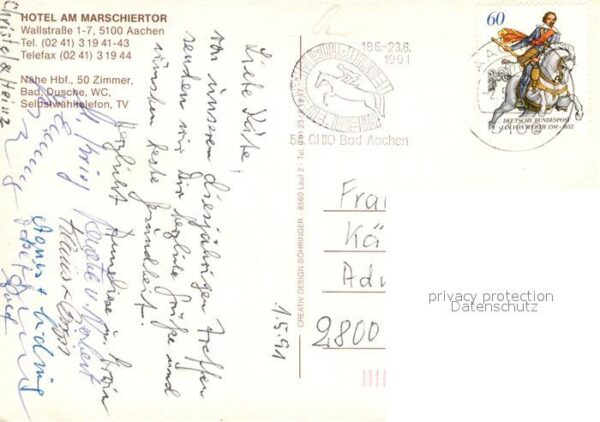 HOTEL AM MARSCHIERTOR
Wallstraße 1-7, 5100 Aachen
Tel. (02 41) 3 19 41-43
Telefax (02 41) 3 19 44
Nähe Hbf., 50 Zimmer,
Bad, Dusche, WC,
Selbstwähltelefon, TV
Christel & Heinz
Liebe Käthe!
Von unserem diesjährigen Treffen
senden wir Dir herzliche Grüße und
wünschen beste Gesundheit.
Herzlichst Anneliese u. Erwin
Renate u. Norbert
Klaus +
Agnes + Ludwig
1.5.91
CREATIV DESIGN BÖHRINGER · 8560 Lauf 2 · Tel.
18.6.-23.6.
1991
CHIO Bad Aachen
60
DEUTSCHE BUNDESPOST
JAN VON WERTH 1591-1652
Fra
Kä
Ad
2800
privacy protection
Datenschutz